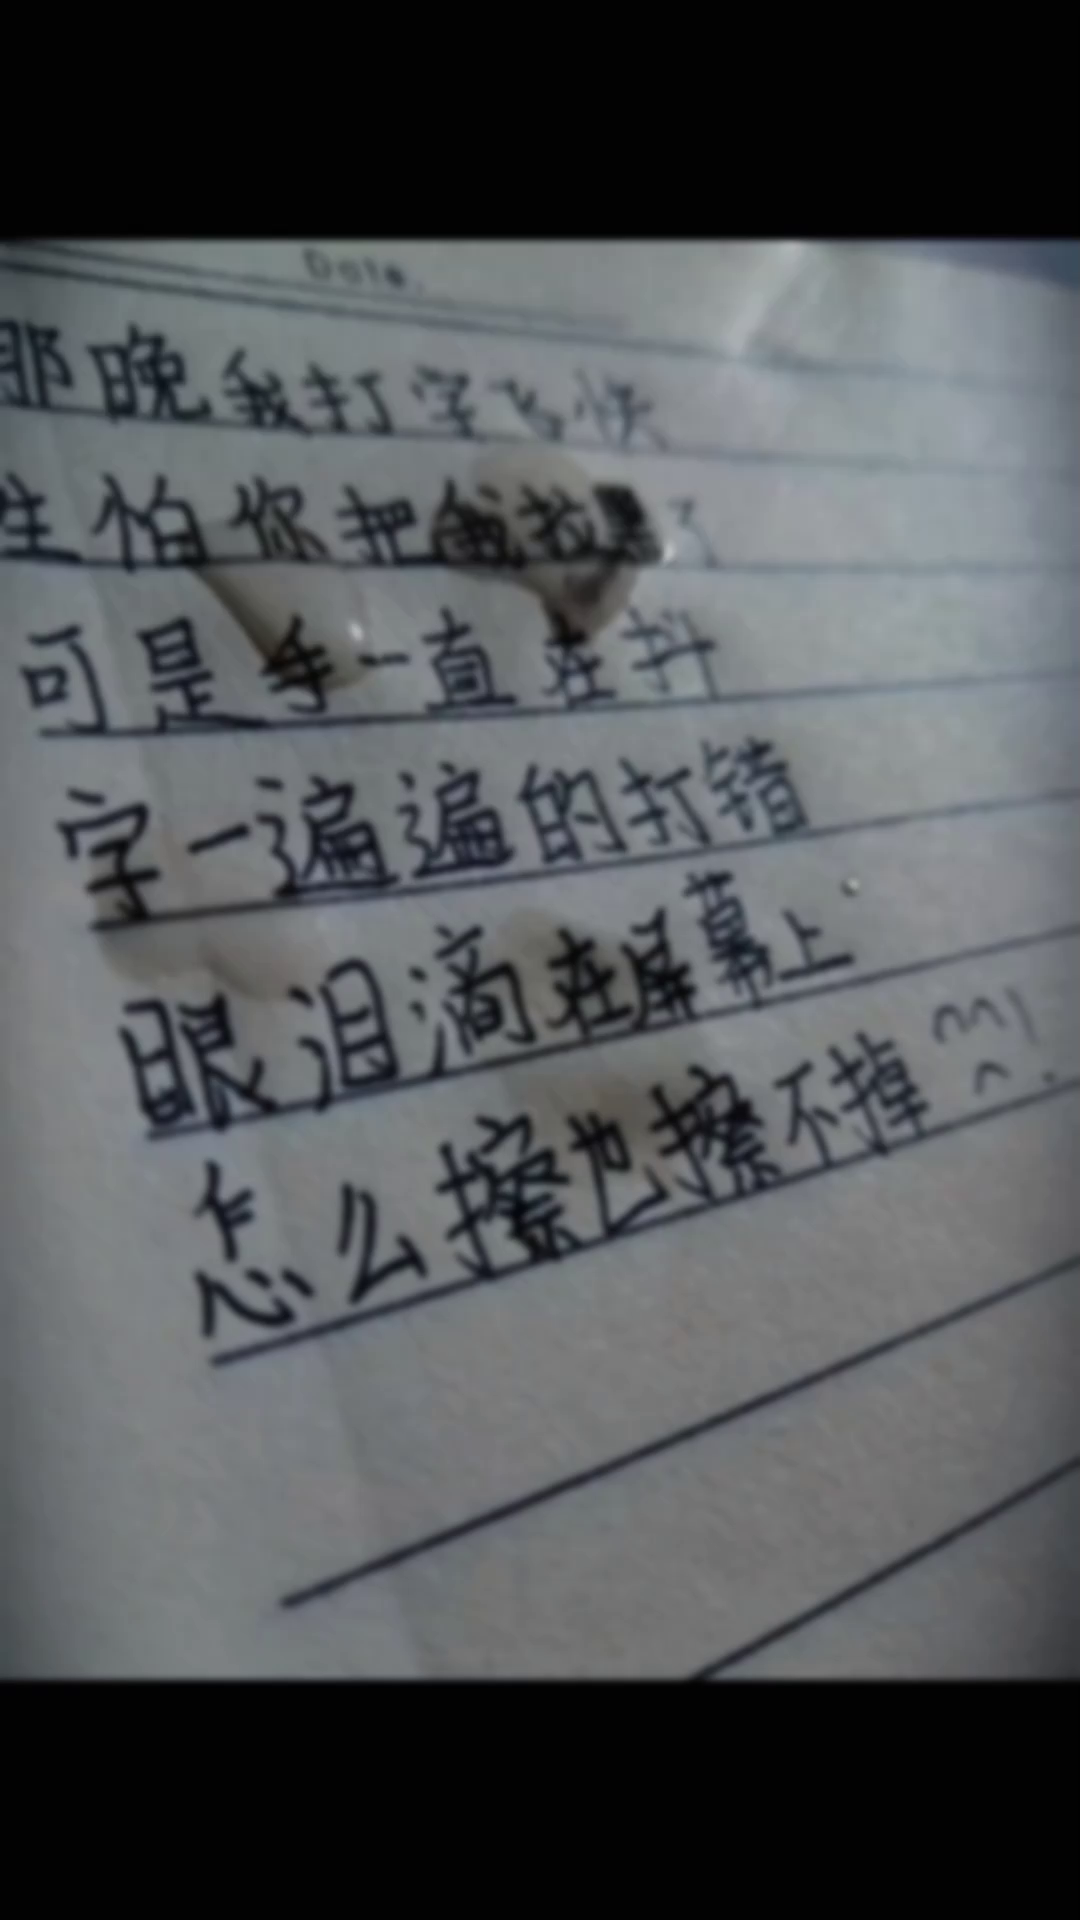 Date.
那晚我打字飞快
生怕你把我拉黑了
可是手一直在抖
字一遍遍的打错
眼泪滴在屏幕上
怎么擦也擦不掉